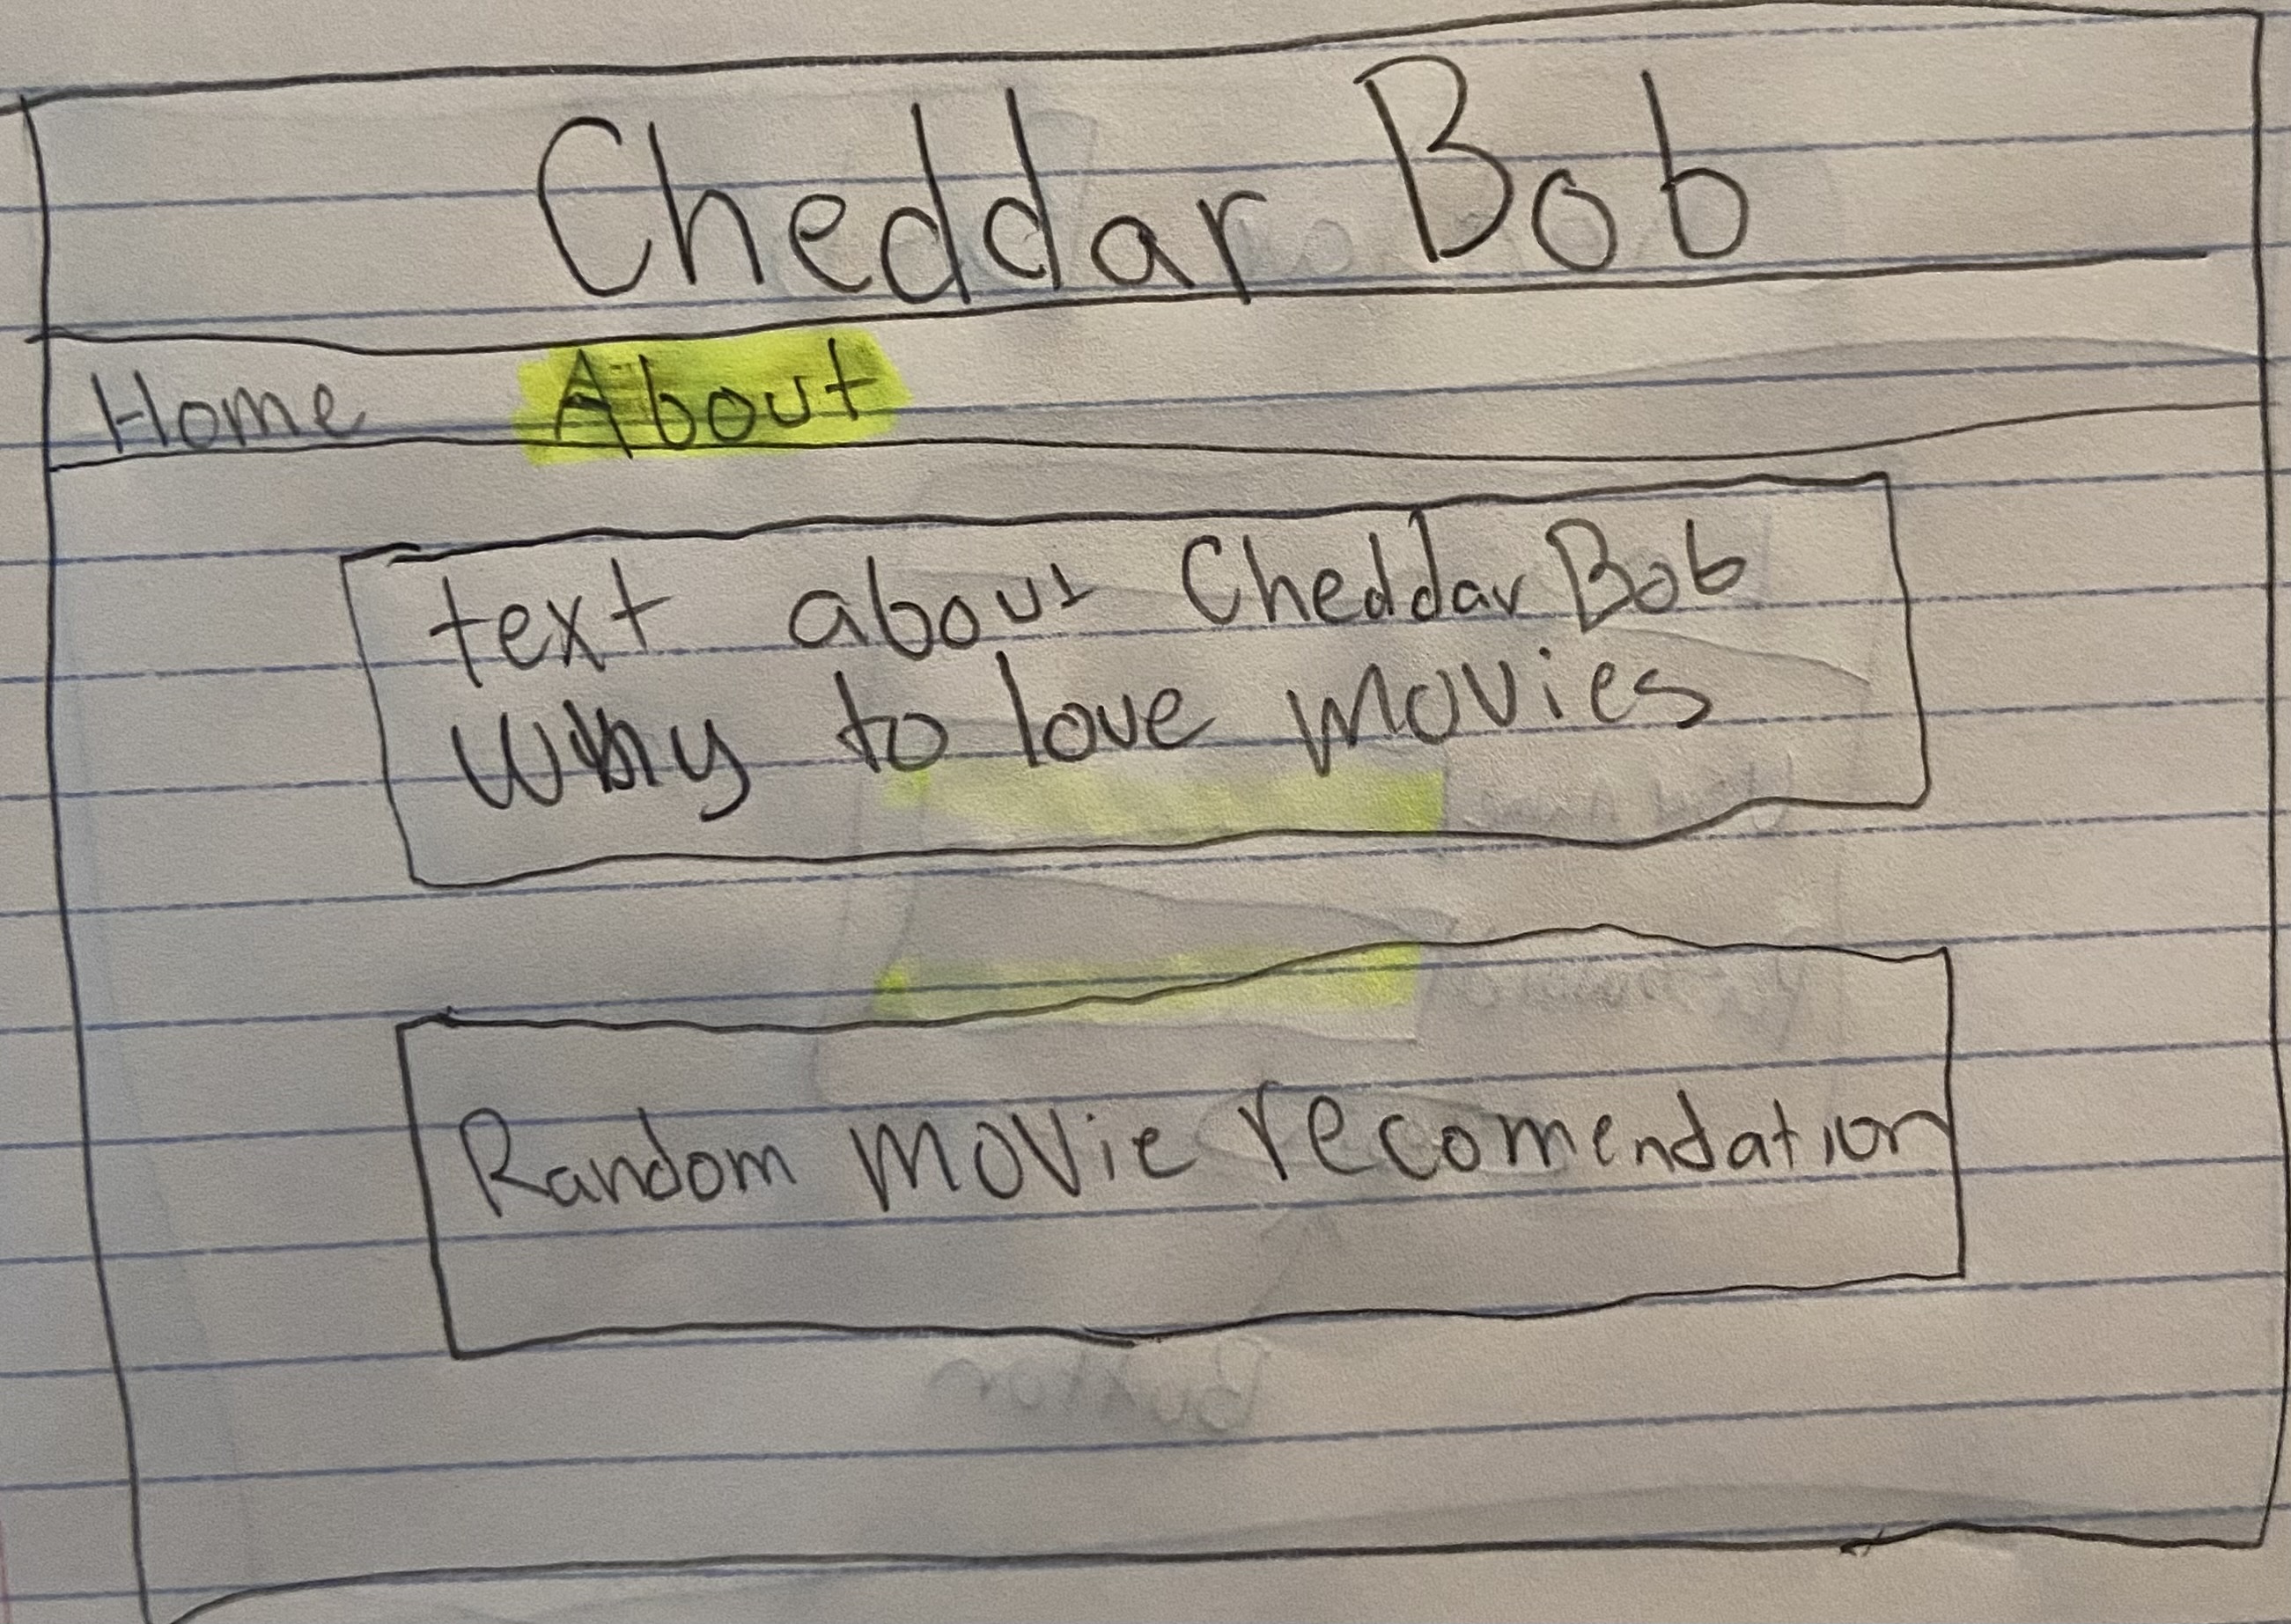 Cheddar Bob
Home About
text about Cheddar Bob
Why to love movies
Random movie recomendation
Button